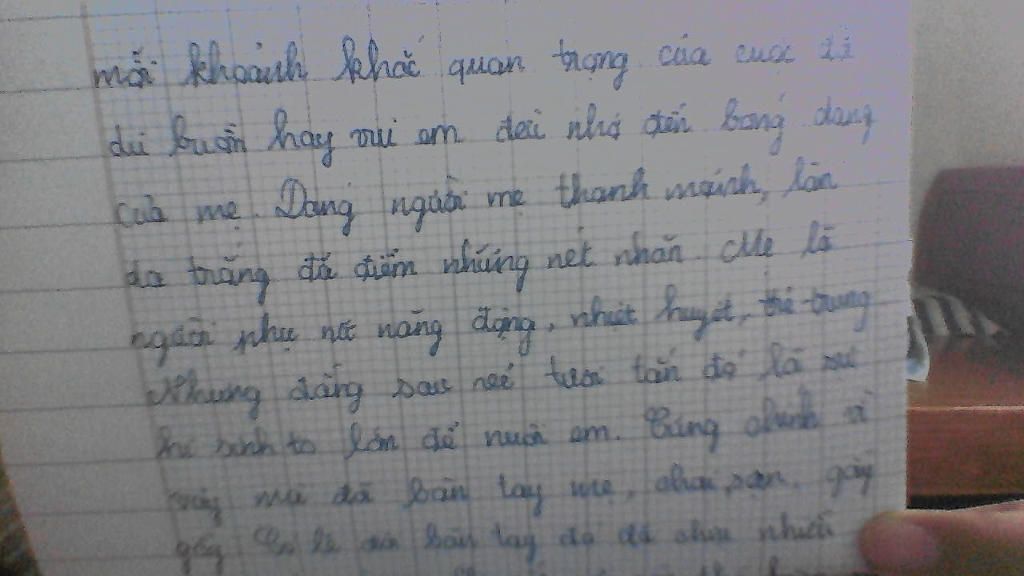 mỗi khoảnh khắc quan trọng của cuộc đời
dù buồn hay vui em đều nhớ đến bóng dáng
của mẹ. Dáng người mẹ thanh mảnh, làn
da trắng đã điểm những nét nhăn. Mẹ là
người phụ nữ năng động, nhiệt huyết, trẻ trung
Nhưng đằng sau nét tươi tắn đó là sự
hi sinh to lớn để nuôi em. Cũng chính vì
vậy mà đôi bàn tay mẹ, chai sạn, gầy
gầy. Có lẽ đôi bàn tay đó đã chịu nhiều